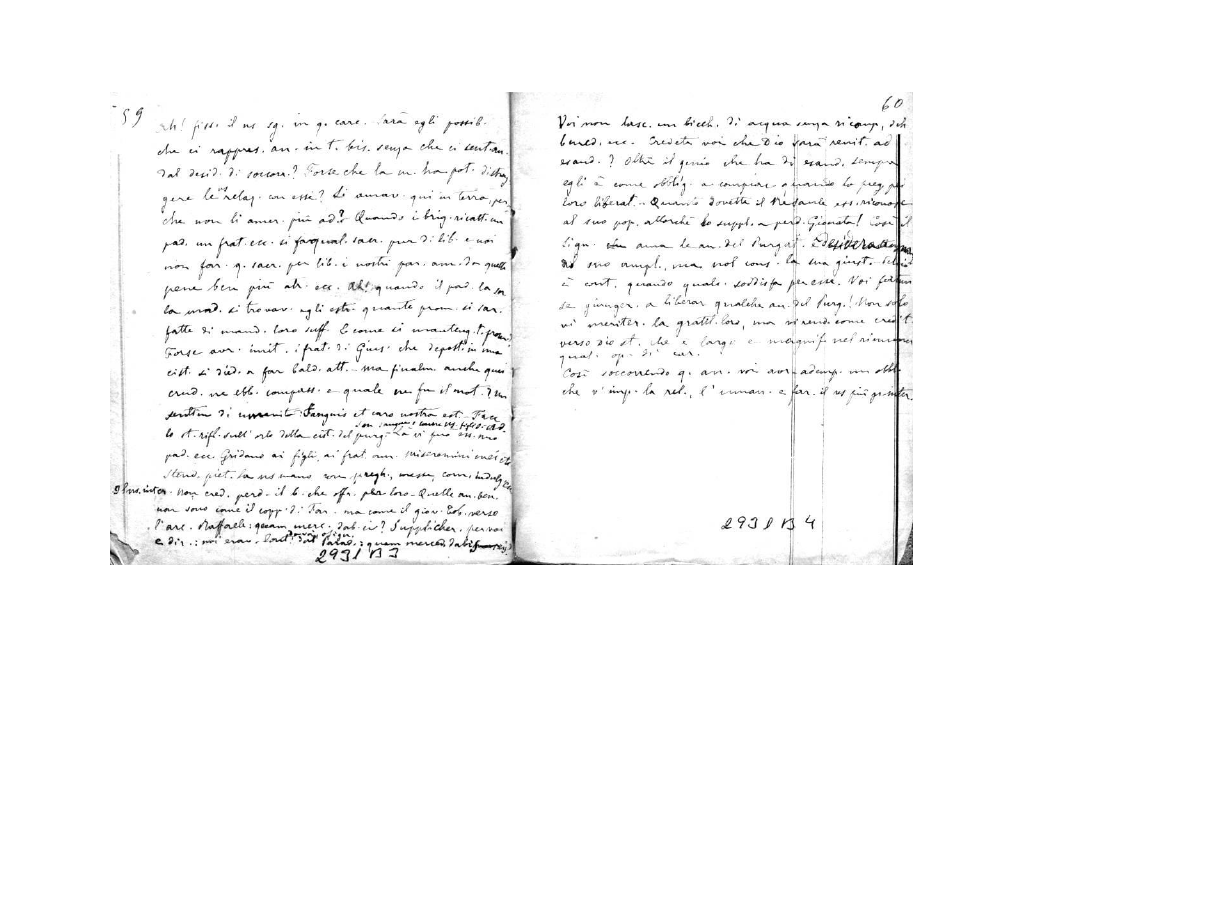 59
Ah! fiss. il ns sg. in q. carc. Sarà egli possib.
che ci rappres. an. in t. bis. senza che ci sentan.
dal desid. di soccor.? Forse che la m. ha pot. distrug
gere le relaz. con esse? Si amav. qui in terra, per
che non li amer. più ad? Quando i brig. ricatt. un
pad. un frat. ecc. si fa qual. sacr. pur di lib. e noi
non far. q. sacr. per lib. i nostri par. am. da quelle
pene ben più atr. ecc. Ah! quando il pad. la sor
la mad. si trovav. agli estr. quante prom. si sar.
fatte di mand. loro suff. E come si manteng. t. prom.
Forse avr. imit. i frat. di Gius. che depost. in una
cist. si died. a far bald. att. - ma finalm. anche quei
crud. ne ebb. compass. e quale ne fu il mot.? Un
sentim. di umanità. Sanguis et caro nostra est. - Face
lo st. rifl. sull' orlo della cist. del purg. Là vi può ess. mio
pad. ecc. Gridano ai figli, ai frat. am. miseremini mei etc
Stend. piet. la ns mano con pregh., messe, com., indulg
non cred. perd. il b. che offr. per loro - Quelle an. ben.
non sono come il copp. di Far. ma come il giov. Tob. verso
l'arc. Raffaele: quam merc. dab. ei? Supplicher. per voi
e dir.: noi erav. lont. dal Parad.: quam merced. dab.
2931 B 3
60
Voi non lasc. un bicch. di acqua senza ricomp., deh
bened. ecc. Credete voi che Dio sarà renit. ad
esaud.? Oltre il genio che ha di esaud. sempre
egli è come obblig. a compiac. quando lo preg. pei
loro liberat. - Quando dovette il Re Saule ess. riconosc
al suo pop. allorché lo suppl. a perd. Gionata! Così il
Sign. ama le an. del Purgat. Desidera
al suo ampl., ma nol cons. la sua giust.
è cont. quando qualc. soddisfa per esse. Voi fortun
se giunger. a liberar qualche an. del Purg.! Non solo
vi meriter. la gratit. loro, ma vi rend. come credit.
verso Dio st. che è largo e magnif. nel rimuner
qual. op. di car.
Così soccorrendo q. an. voi avr. ademp. un obbl
che v' imp. la rel., l' uman. e far. il vs più gr. inter.
2931 B 4